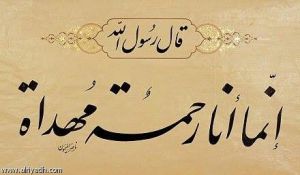 قال رسول الله
إنما أنا رحمة مهداة
www.alriyadh.com